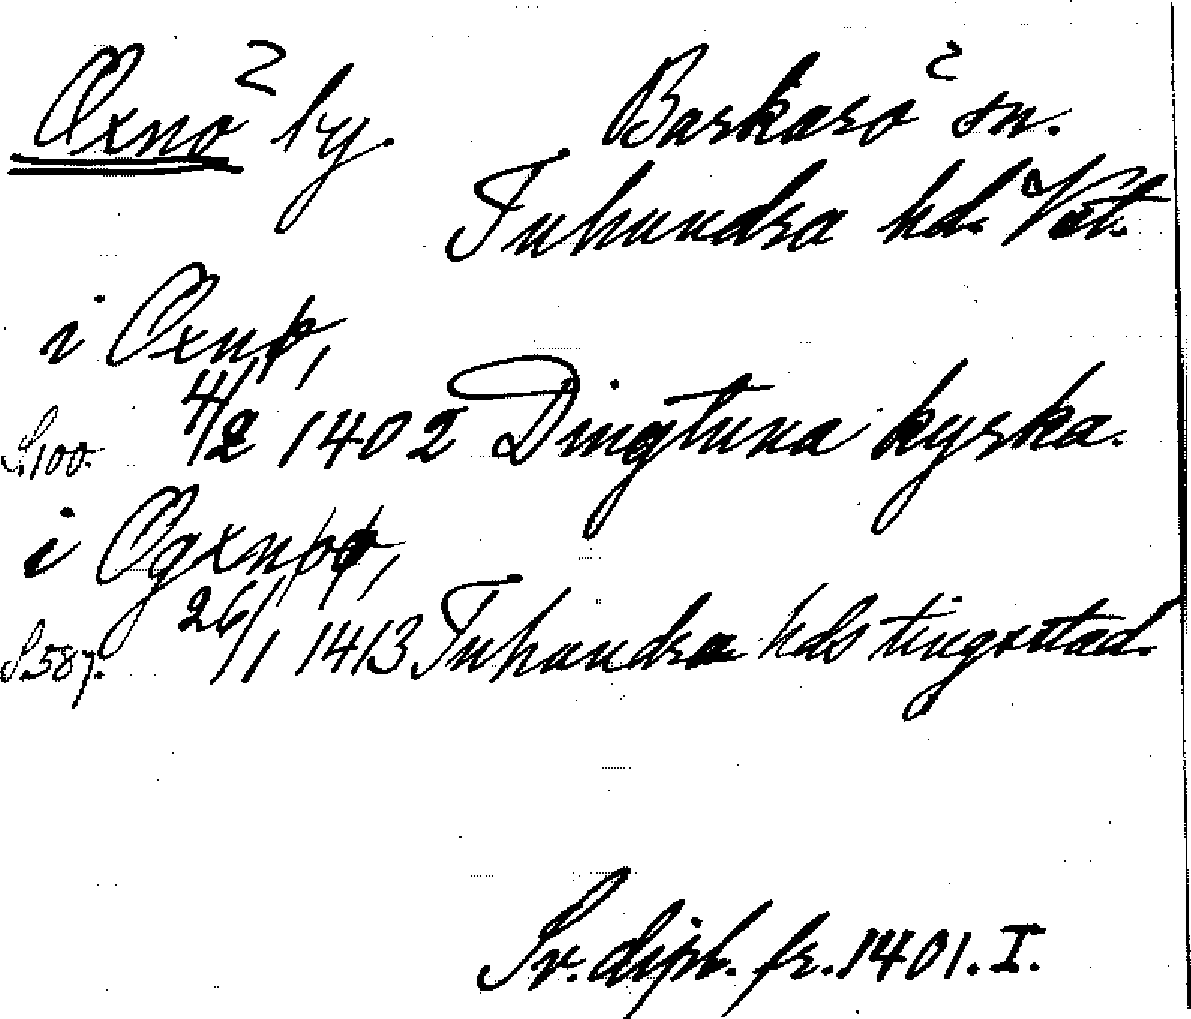 Oxnö by. Barkarö sn.
Tuhundra hd. Vstm.
i Oxnø,
S. 100. 4/2 1402 Dingtuna kyrka.
i Ogxnøø,
S. 587. 26/1 1413 Tuhundra hds tingsstad.
Sv. dipl. fr. 1401. I.